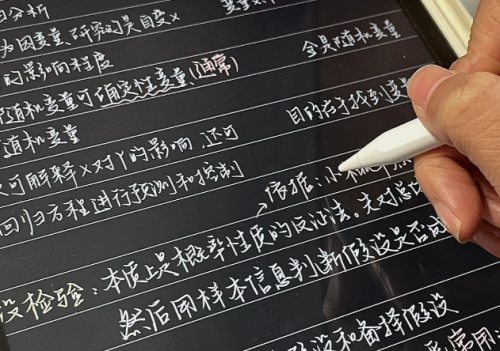 归分析
为因变量,研究的是自变x
的影响程度 全是随机变量
随机变量可确定性变量(通常)
随机变量 目的在于找到变量
可解释x对Y的影响,还可
回归方程进行预测和控制
依据:小
设检验:本质上是概率性质的反证法。先对总
然后用样本信息判断假设是否
设和备择假设
常用